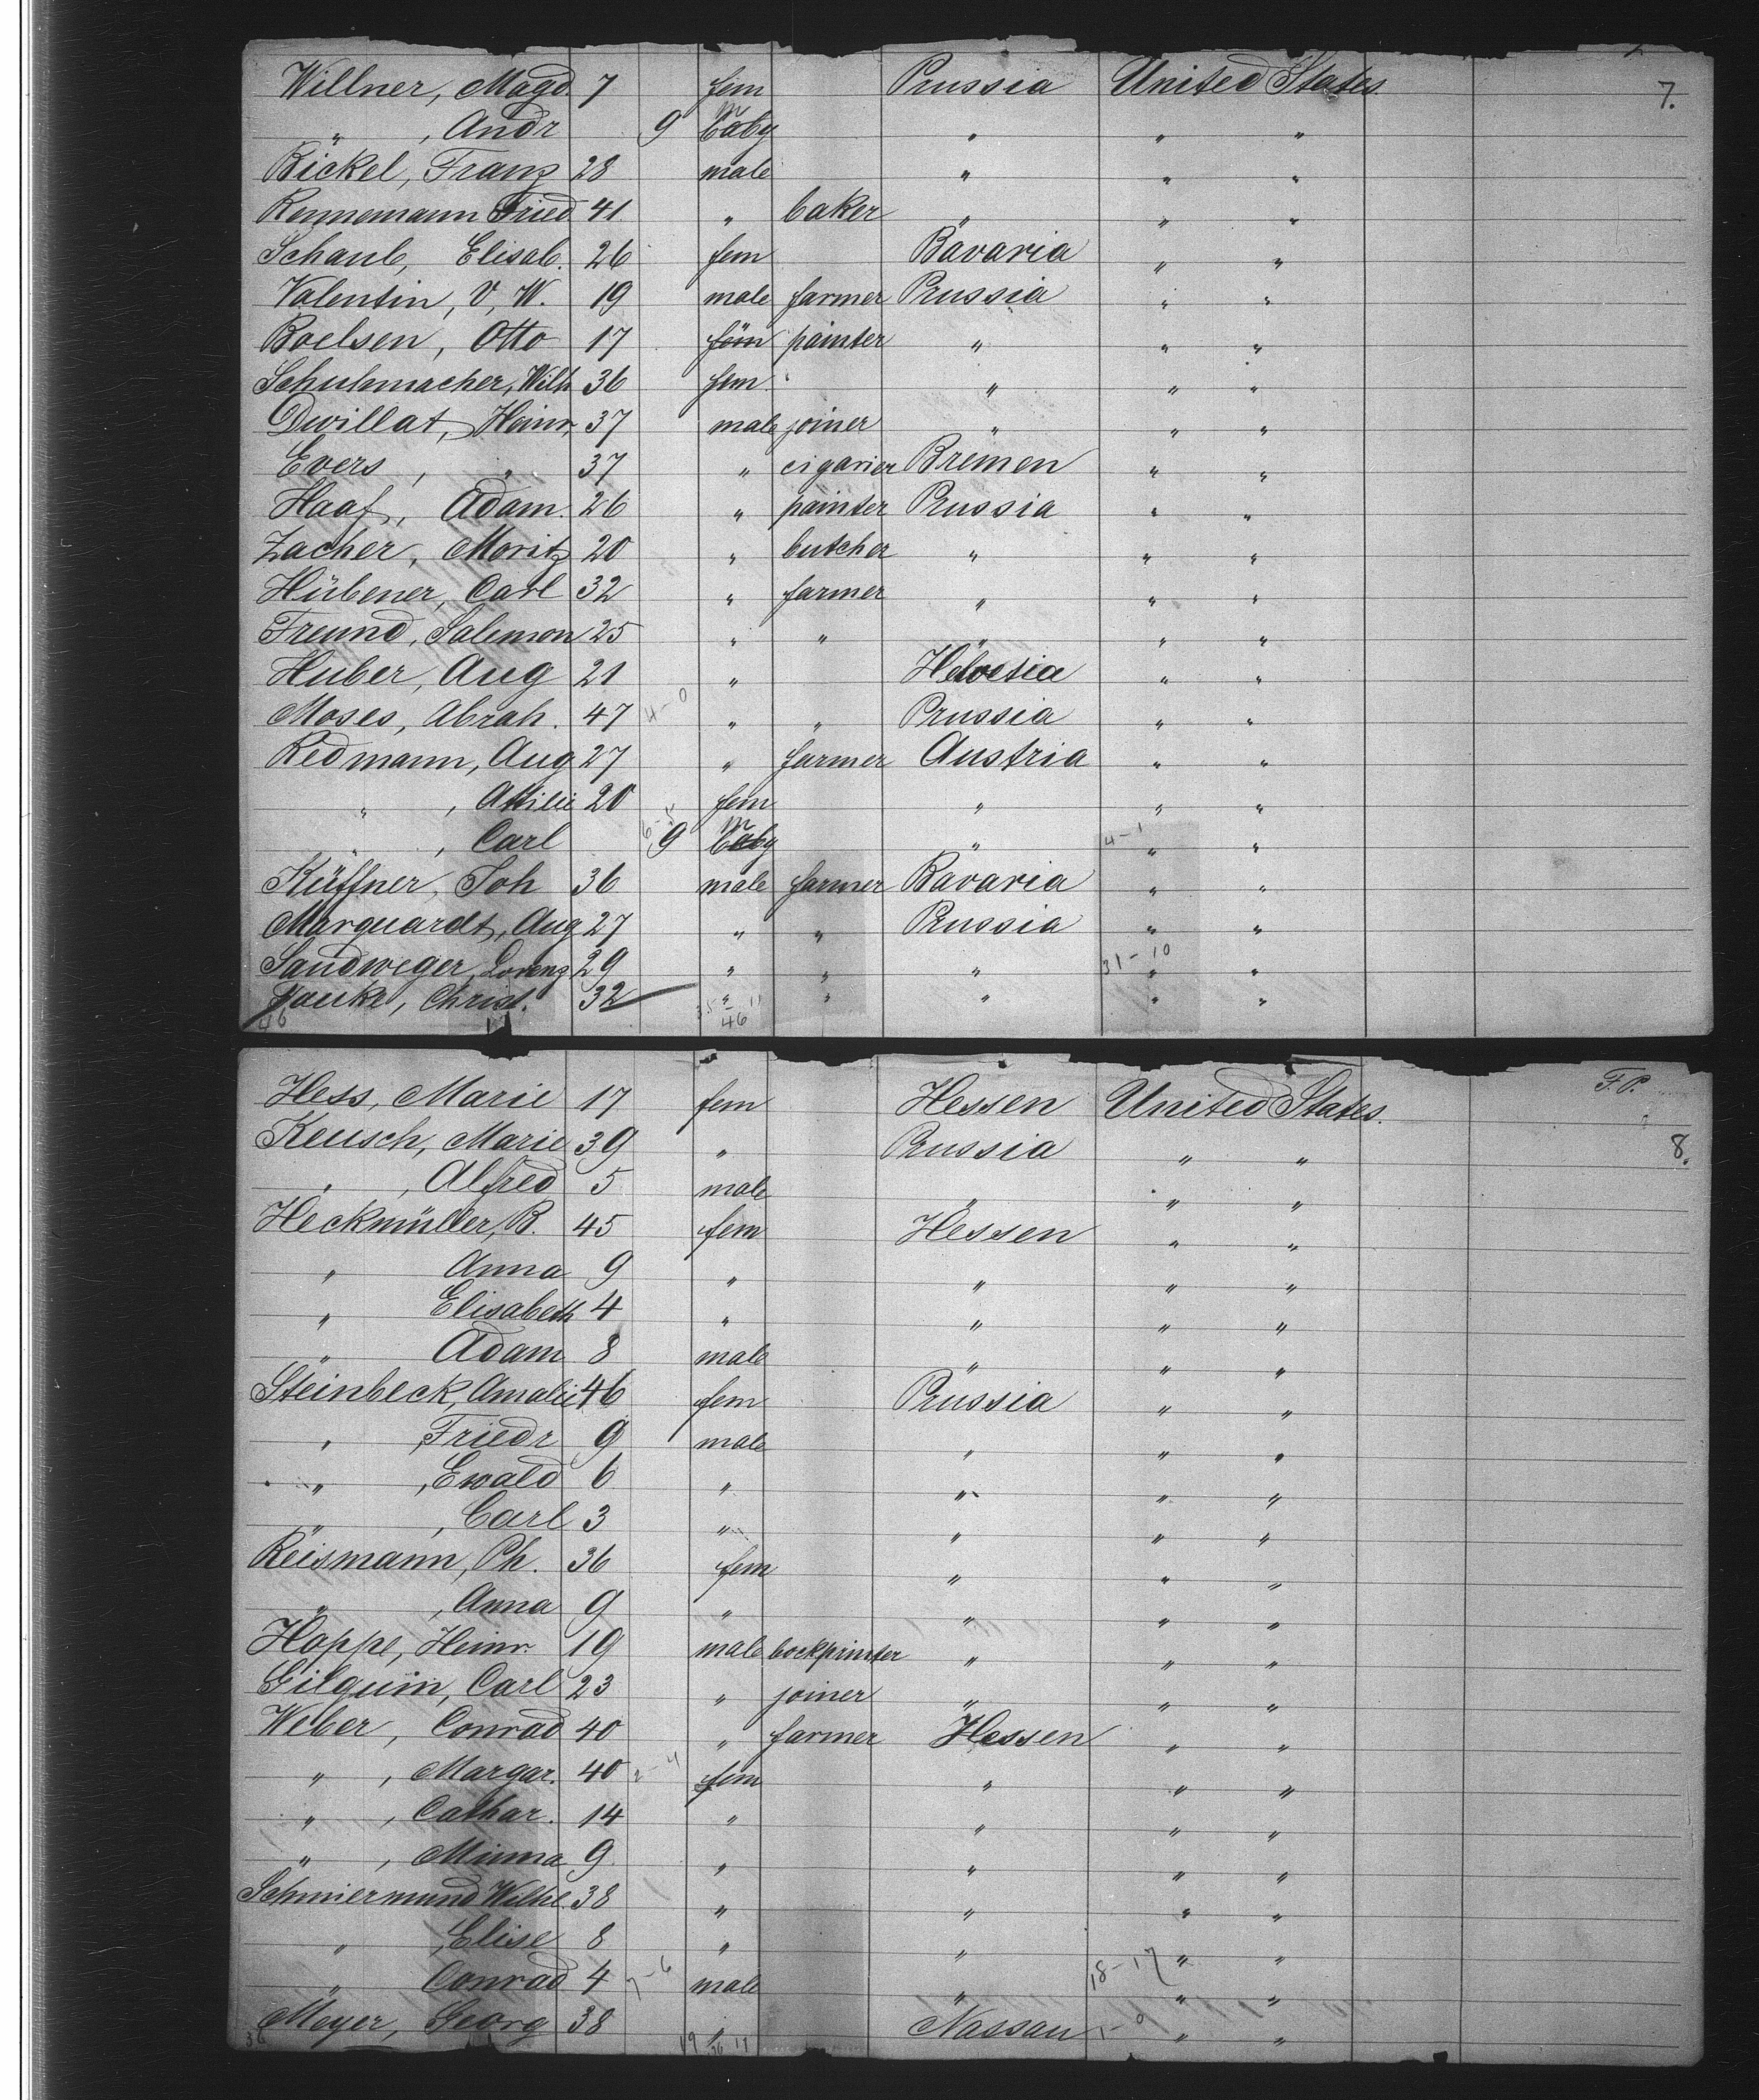 7.
Willner, Magd. 7 fem Prussia United States.
" , Andr 9 m baby " " "
Bickel, Franz 28 male " " "
Rennemann Fried 41 " baker " " "
Schaub, Elisab. 26 fem Bavaria " "
Valentin, V, W. 19 male farmer Prussia " "
Boelsen, Otto 17 fem painter " " "
Schuhmacher, Wilh 36 fem. " " "
Dwillat, Heinr, 37 male joiner " " "
Evers , " 37 " cigarier Bremen " "
Haaf, Adam. 26 " painter Prussia " "
Zacher, Moritz 20 " butcher " " "
Hübener, Carl 32 " farmer " " "
Freund, Salemon 25 " " " " "
Huber, Aug 21 " Helvetia " "
Moses, Abrah. 47 4-0 " " Prussia " "
Redmann, Aug 27 " farmer Austria " "
" , Attilie 20 fem " " "
" , Carl 6-5 9 m baby " 4-1 " "
Küffner, Joh 36 male farmer Bavaria " "
Marquardt, Aug 27 " " Prussia " "
Sandweger, Lorenz 29 " " " 31-10 " "
Christ. 32 " " " " "
46 35 11 46
F. P.
8.
Hess, Marie 17 fem Hessen United States.
Keusch, Marie 39 " Prussia " "
" , Alfred 5 male " " "
Heckmüller, R. 45 fem Hessen " "
" Anna 9 " " " "
" Elisabeth 4 " " " "
" Adam 8 male " " "
Steinbeck, Amalie 46 fem Prussia " "
" , Friedr 9 male " " "
" , Ewald 6 " " " "
" , Carl 3 " " " "
Reismann, Ph. 36 fem " " "
" , Anna 9 " " " "
Hoppe, Heinr. 19 male bockprinter " " "
Gilquin, Carl 23 " joiner " " "
Weber, Conrad 40 " farmer Hessen " "
" , Margar. 40 2-4 fem " " "
" , Cathar. 14 " " " "
" , Minna 9 " " " "
Schmiermund Wilhe. 38 " " " "
" , Elise 8 " " " "
" Conrad 4 7-6 male " 18-17 " "
Meyer, Georg 38 " Nassau 1-0 " "
36 19 36 17